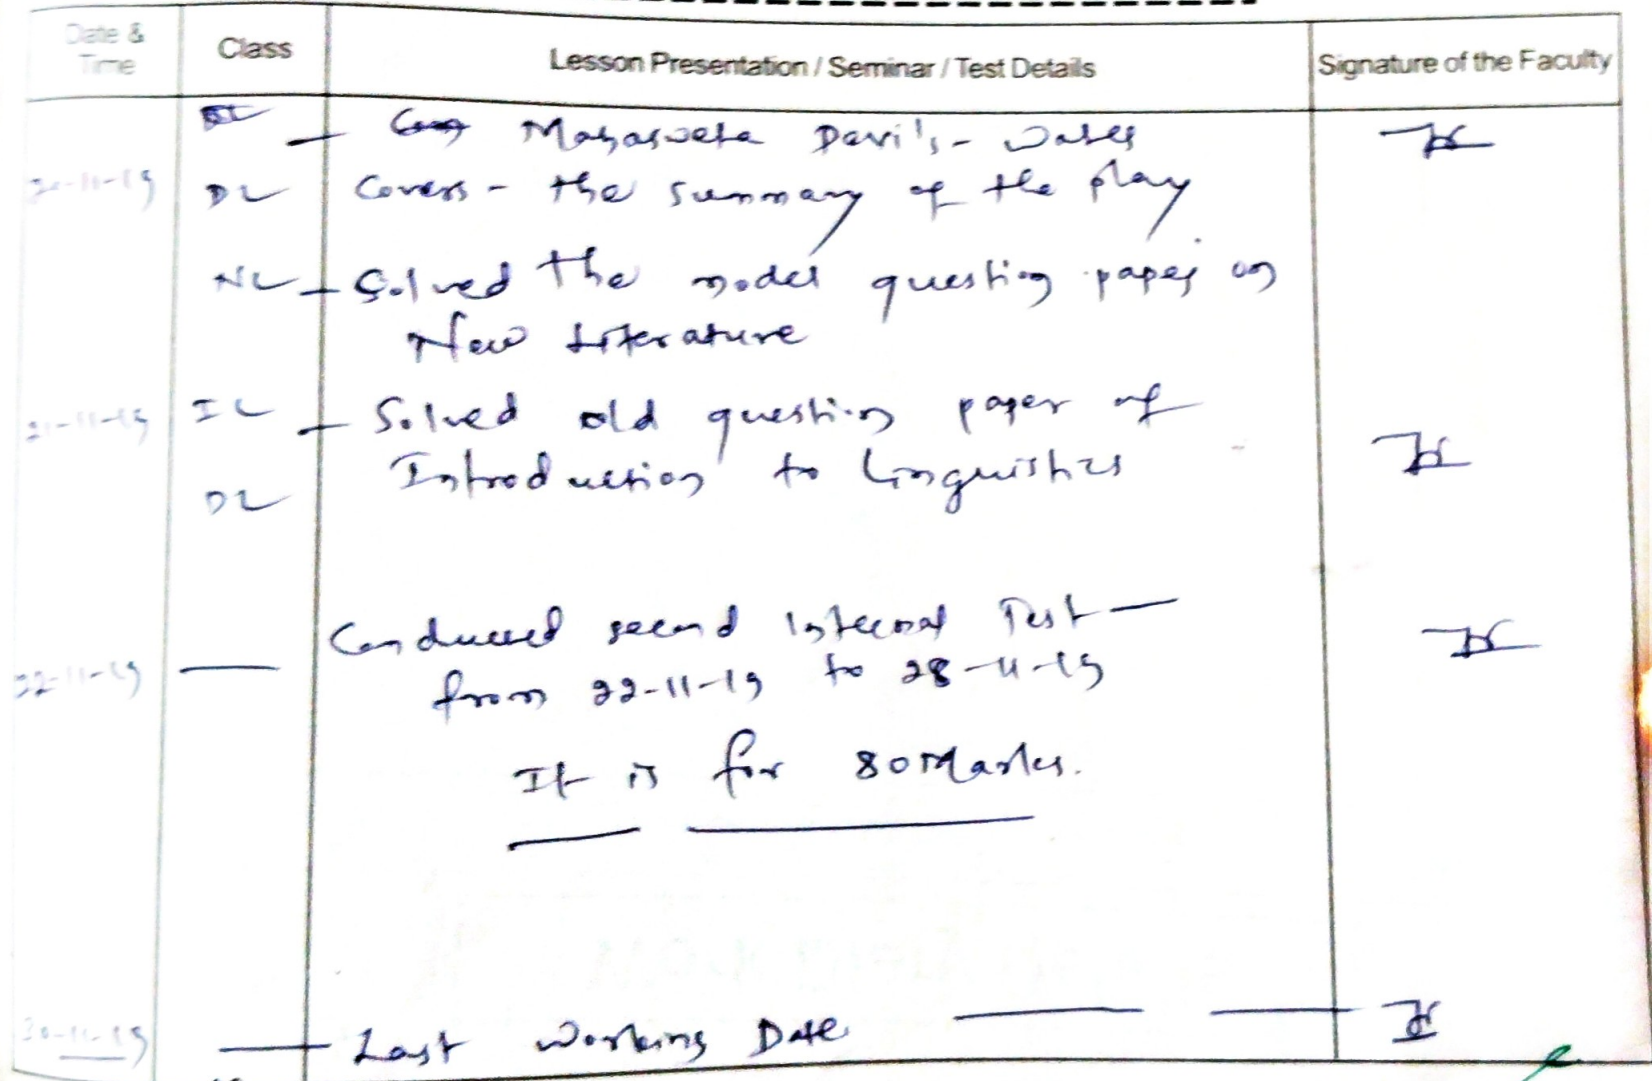 Date & Time
Class
Lesson Presentation / Seminar / Test Details
Signature of the Faculty
Mahasweta Devi's - Water
20-11-19 DL Covers - the summary of the play
NL - Solved the model question paper on
New Literature
21-11-19 IL - Solved old question paper of
Introduction to Linguistics
DL
Conducted second Internal Test -
22-11-19 from 22-11-19 to 28-11-19
It is for 80 Marks.
30-11-19 Last Working Date